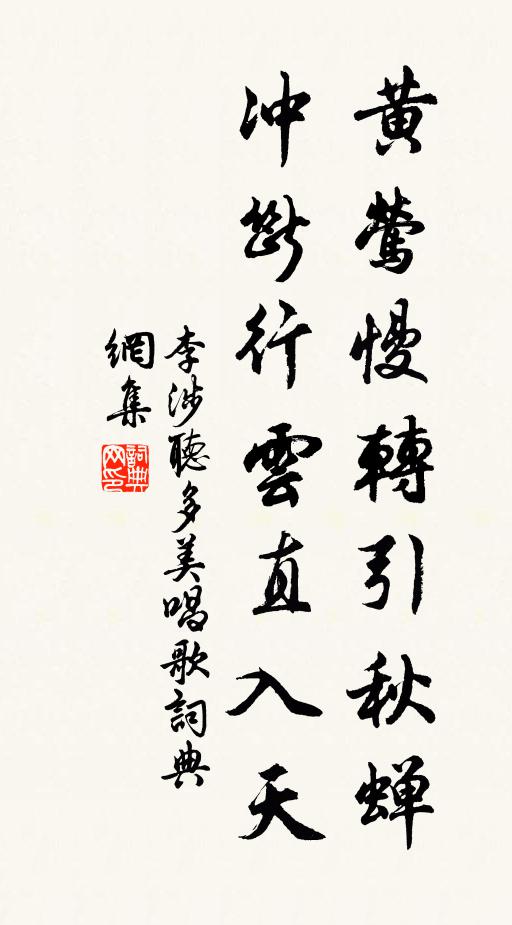 黃鶯慢轉引秋蟬
冲斷行雲直入天
李涉聽多美唱歌詞典
網集
詞典网印